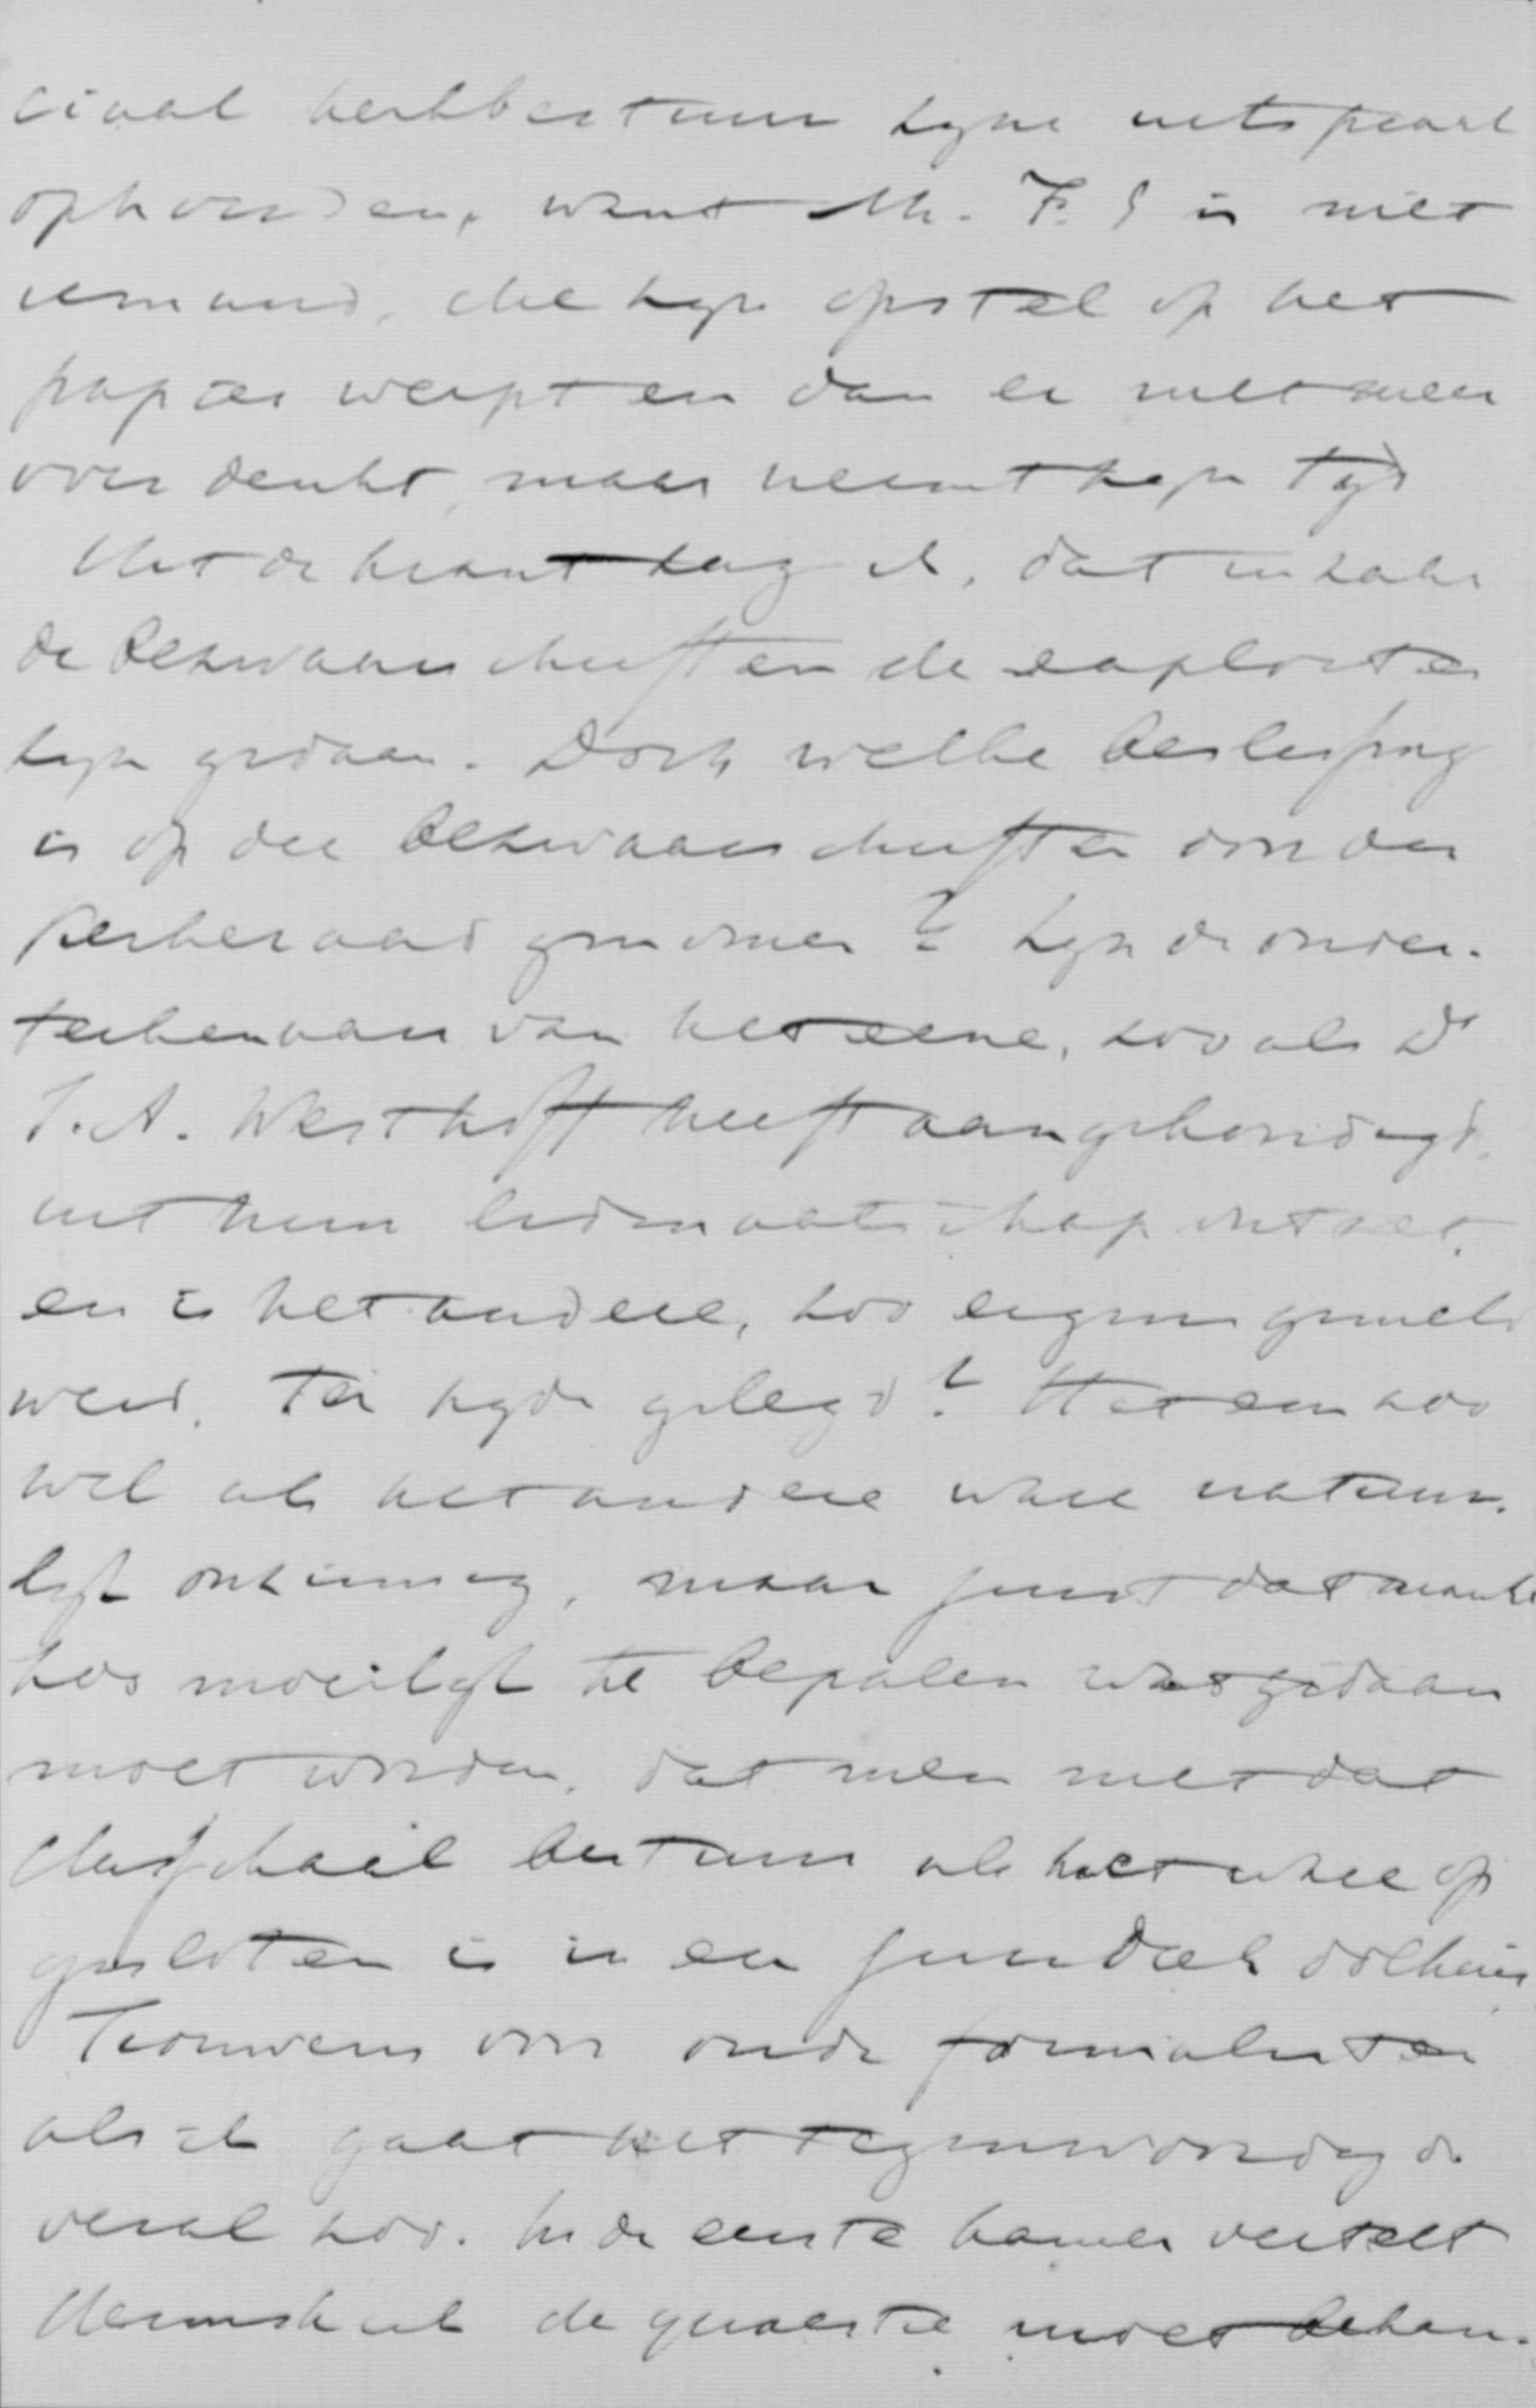 ciaal kerkbestuur zyne uitspraak
ophouden, want Mr. F. S is niet
iemand, die zyn opstel op het
papier werpt en dan er niet meer
over denkt, maar neemt zyn tyd
Uit de krant zag ik, dat inzake
de bezwaarschriften de exploiten
zyn gedaan. Doch welke beslissing
is op die bezwaarschriften door den
Kerkeraad genomen? Zyn de onder-
teekenaars van het eene, zooals Ds
J. A. Westhoff heeft aangekondigd,
uit hun lidmaatschap ontzet,
en is het andere, zoo ergens gemeld
werd, ter zyde gelegd? Het een zoo
wel als het andere ware natuur-
lyk onzinnig, maar juist dat maakt
zoo moeilyk te bepalen wat gedaan
moet worden, dat men met dat
bestuur als het ware op
gesloten is in een juridiek dolhuis
Trouwens voor oude formalisten
als ik gaat het tegenwoordig o
veral zoo. In de eerste kamer vertelt
Heemskerk de quaestie moet behan-